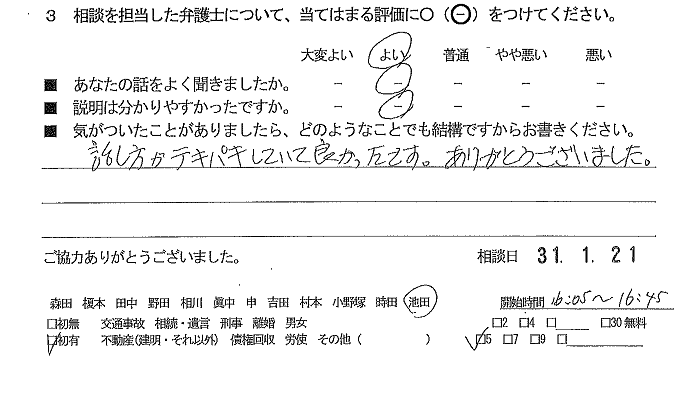 3 相談を担当した弁護士について、当てはまる評価に○(㊀)をつけてください。
大変よい よい 普通 やや悪い 悪い
■ あなたの話をよく聞きましたか。 − − − − −
■ 説明は分かりやすかったですか。 − − − − −
■ 気がついたことがありましたら、どのようなことでも結構ですからお書きください。
話し方がテキパキしていて良かったです。ありがとうございました。
ご協力ありがとうございました。 相談日 31. 1. 21
森田 榎本 田中 野田 相川 眞中 申 吉田 村本 小野塚 時田 池田 開始時間 16:05〜16:45
□初無 交通事故 相続・遺言 刑事 離婚 男女 □2 □4 □____ □30無料
☑初有 不動産(建明・それ以外) 債権回収 労使 その他( ) ☑5 □7 □9 □____